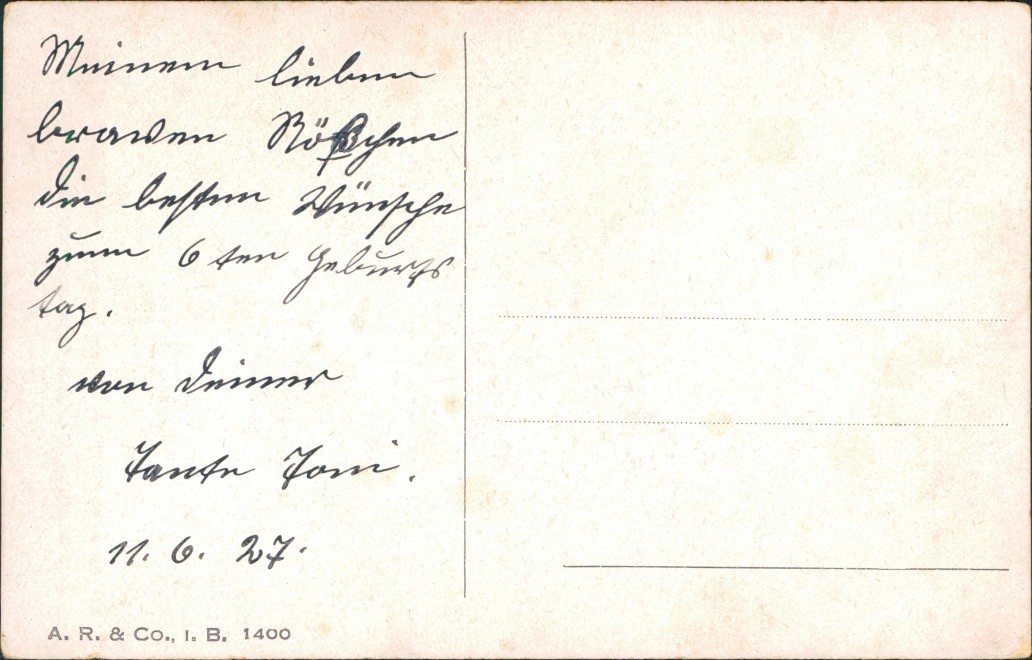 Meinem lieben
braven Rößchen
die besten Wünsche
zum 6 ten Geburts
tag.
von Deiner
Tante Toni.
11. 6. 27.
A. R. & Co., i. B. 1400